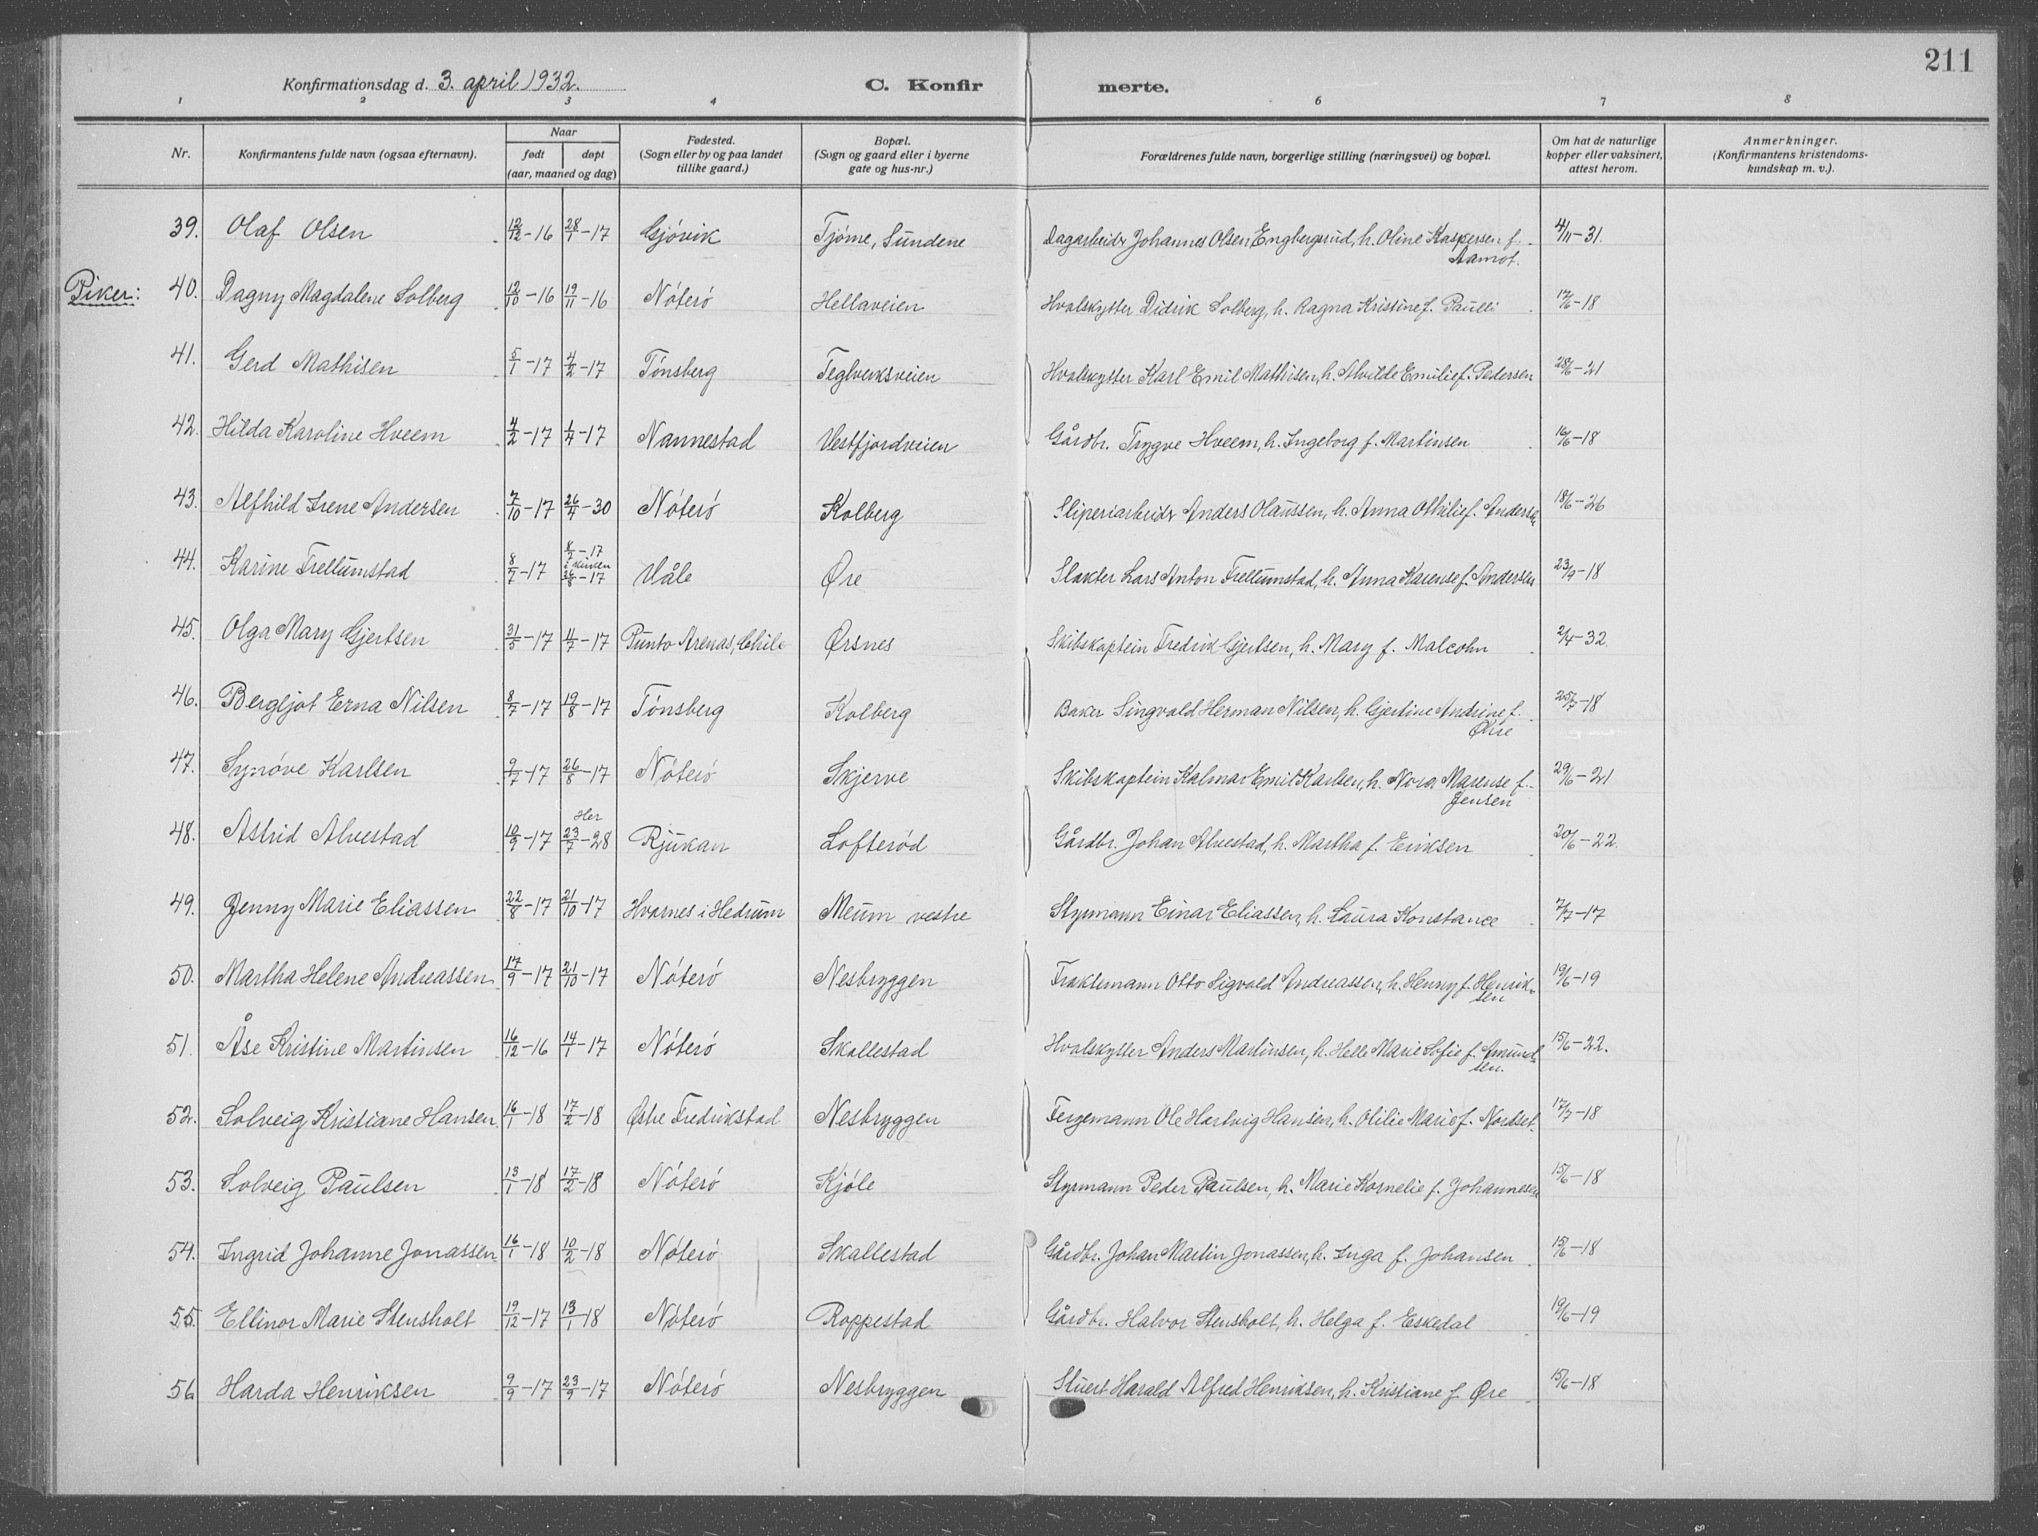 211
Konfirmationsdag d. 3. april 1932. C. Konfirmerte.
1 2 3 4 6 7 8
Nr. Konfirmantens fulde navn (ogsaa efternavn). Naar født døpt (aar, maaned og dag) Fødested. (Sogn eller by og paa landet tillike gaard.) Bopæl. (Sogn og gaard eller i byerne gate og hus-nr.) Forældrenes fulde navn, borgerlige stilling (næringsvei) og bopæl. Om hat de naturlige kopper eller vaksinert, attest herom. Anmerkninger. (Konfirmantens kristendoms-kundskap m. v.).
39. Olaf Olsen 12/12-16 28/1-17 Gjövik Tjöme, Sundene Dagarbeidr Johannes Olsen Engbergsrud, h. Oline Kaspersen f. Aamot. 4/11-31.
Piker:
40. Dagny Magdalene Solberg 12/10-16 19/11-16 Nöterö Hellaveien Hvalskytter Didrik Solberg, h. Ragna Kristine f. Paulli 17/6-18
41. Gerd Mathisen 5/1-17 4/2-17 Tönsberg Teglverksveien Hvalskytter Karl Emil Mathisen, h. Alvilde Emilie f. Pedersen 28/6-21
42. Hilda Karoline Hveem 4/2-17 1/4-17 Nannestad Vestfjordveien Gårdbr. Trygve Hveem, h. Ingeborg f. Martinsen 16/6-18
43. Alfhild Irene Andersen 7/10-17 26/4-30 Nöterö Kolberg Sliperiarbeidr Anders Olaussen, h. Anna Othilie f. Andersen 18/6-26
44. Karine Trellumstad 8/7-17 8/7-17 i kirken 26/8-17 Våle Øre Slakter Lars Anton Trellumstad, h. Anna Karense f. Andersen 23/9-18
45. Olga Mary Gjertsen 31/5-17 4/7-17 Punto Arenas, Chile Ørsnes Skibskaptein Fredrik Gjertsen, h. Mary f. Malcohn 2/4-32.
46. Bergljot Erna Nilsen 8/7-17 19/8-17 Tönsberg Kolberg Baker Singvald Herman Nilsen, h. Gjertine Andrine f. Øre 25/7-18
47. Synöve Karlsen 9/7-17 26/8-17 Nöterö Skjerve Skibskaptein Kalmar Emil Karlsen, h. Nora Marense f. Jensen 29/6-21
48. Astrid Alvestad 10/9-17 Her 23/7-28 Rjukan Lofteröd Gårdbr. Johan Alvestad, h. Martha f. Eriksen 20/6-22.
49. Jenny Marie Eliassen 22/8-17 21/10-17 Hvarnes i Hedrum Meum vestre Styrmann Einar Eliassen, h. Laura Konstance 7/7-17
50. Martha Helene Andreassen 17/9-17 21/10-17 Nöterö Nesbryggen Traktemann Otto Sigvald Andreassen, h. Henny f. Henriksen 19/6-19
51. Åse Kristine Martinsen 16/12-16 14/1-17 Nöterö Skallestad Hvalskytter Anders Martinsen, h. Helle Marie Sofie f. Amundsen. 15/6-22.
52. Solveig Kristiane Hansen 16/1-18 17/2-18 Østre Fredrikstad Nesbryggen Fergemann Ole Hartvig Hansen, h. Otilie Marie f. Nordset. 17/7-18
53. Solveig Paulsen 13/1-18 17/2-18 Nöterö Kjöle Styrmann Peder Paulsen, h. Marie Kornelie f. Johannessen 15/6-18
54. Ingrid Johanne Jonassen 16/1-18 10/2-18 Nöterö Skallestad Gårdbr. Johan Martin Jonassen, h. Inga f. Johansen 15/6-18
55. Ellinor Marie Stensholt 19/12-17 13/1-18 Nöterö Roppestad Gårdbr. Halvor Stensholt, h. Helga f. Eskedal 19/6-19
56 Harda Henriksen 9/9-17 23/9-17 Nöterö Nesbryggen Stuert Harald Alfred Henriksen, h. Kristiane f. Øre 15/6-18